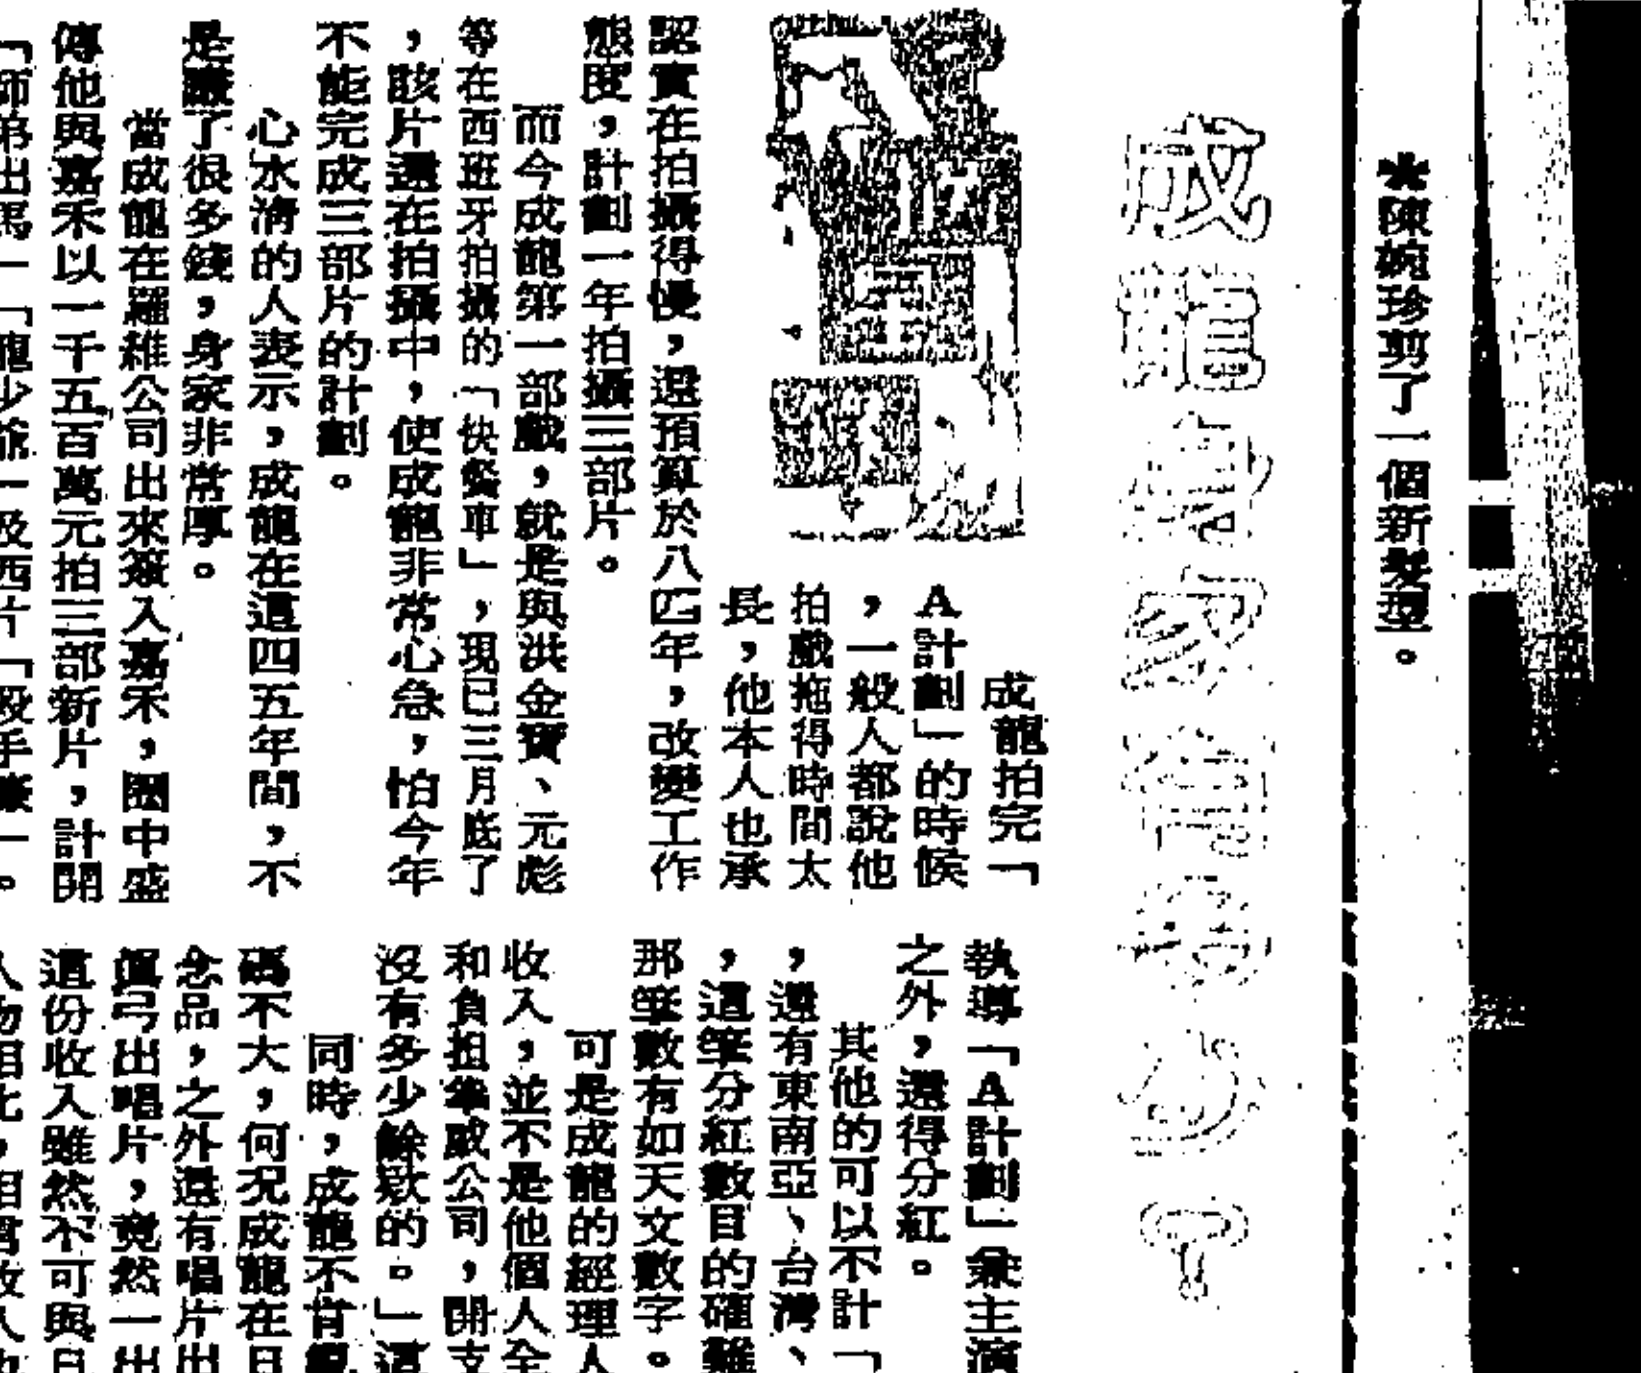 *陳婉珍剪了一個新髮型。
成龍身家有多少?
成龍拍完「
A計劃」的時候
，一般人都說他
拍戲拖得時間太
長，他本人也承
認實在拍攝得慢，還預算於八四年，改變工作
態度，計劃一年拍攝三部片。
而今成龍第一部戲，就是與洪金寶、元彪
等在西班牙拍攝的「快餐車」，現已三月底了
，該片還在拍攝中，使成龍非常心急，怕今年
不能完成三部片的計劃。
心水清的人表示，成龍在這四五年間，不
是賺了很多錢，身家非常厚。
當成龍在羅維公司出來簽入嘉禾，圈中盛
傳他與嘉禾以一千五百萬元拍三部新片，計開
「師弟出馬」「龍少爺」及西片「殺手壕」。
執導「A計劃」兼主演
之外，還得分紅。
其他的可以不計「
，還有東南亞、台灣、
，這筆分紅數目的確難
那筆數有如天文數字。
可是成龍的經理人
收入，並不是他個人全
和負担筆威公司，開支
沒有多少餘欵的。」這
同時，成龍不肯親
碼不大，何況成龍在日
念品，之外還有唱片出
弓出唱片，竟然一出
這份收入雖然不可與日